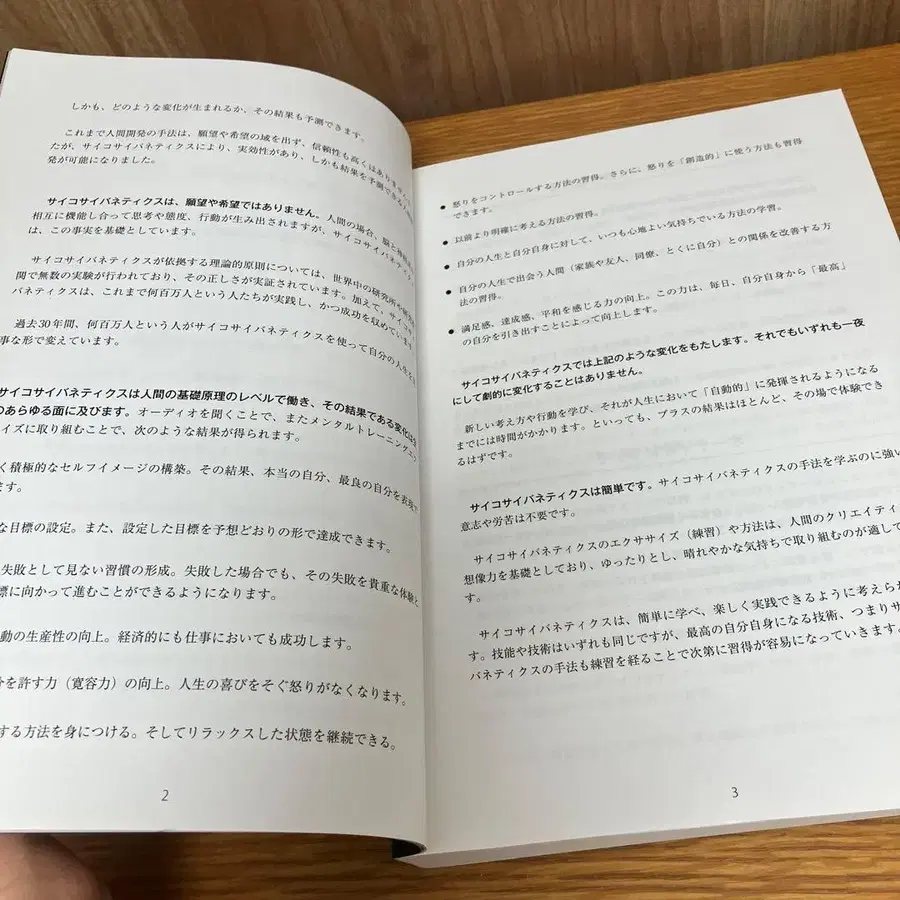 しかも、どのような変化が生まれるか、その結果も予測できます。
これまで人間開発の手法は、願望や希望の域を出ず、信頼性も高くはありません
たが、サイコサイバネティクスにより、実効性があり、しかも結果を予測できる人間
発が可能になりました。
サイコサイバネティクスは、願望や希望ではありません。人間の場合、脳と神経
相互に機能し合って思考や態度、行動が生み出されますが、サイコサイバネティク
は、この事実を基礎としています。
サイコサイバネティクスが依拠する理論的原則については、世界中の研究所や
間で無数の実験が行われており、その正しさが実証されています。加えて、サイコサイ
バネティクスは、これまで何百万人という人たちが実践し、かつ成功を収めています
過去30年間、何百万人という人がサイコサイバネティクスを使って自分の人生を
事な形で変えています。
サイコサイバネティクスは人間の基礎原理のレベルで働き、その結果である変化は
のあらゆる面に及びます。オーディオを聞くことで、またメンタルトレーニングエク
イズに取り組むことで、次のような結果が得られます。
く積極的なセルフイメージの構築。その結果、本当の自分、最良の自分を表現
ます。
な目標の設定。また、設定した目標を予想どおりの形で達成できます。
失敗として見ない習慣の形成。失敗した場合でも、その失敗を貴重な体験と
標に向かって進むことができるようになります。
動の生産性の向上。経済的にも仕事においても成功します。
分を許す力（寛容力）の向上。人生の喜びをそぐ怒りがなくなります。
する方法を身につける。そしてリラックスした状態を継続できる。
2
● 怒りをコントロールする方法の習得。さらに、怒りを「創造的」に使う方法も習得
できます。
● 以前より明確に考える方法の習得。
● 自分の人生と自分自身に対して、いつも心地よい気持ちでいる方法の学習。
● 自分の人生で出会う人間（家族や友人、同僚、とくに自分）との関係を改善する方
法の習得。
● 満足感、達成感、平和を感じる力の向上。この力は、毎日、自分自身から「最高」
の自分を引き出すことによって向上します。
サイコサイバネティクスでは上記のような変化をもたします。それでもいずれも一夜
にして劇的に変化することはありません。
新しい考え方や行動を学び、それが人生において「自動的」に発揮されるようになる
までには時間がかかります。といっても、プラスの結果はほとんど、その場で体験でき
るはずです。
サイコサイバネティクスは簡単です。サイコサイバネティクスの手法を学ぶのに強い
意志や労苦は不要です。
サイコサイバネティクスのエクササイズ（練習）や方法は、人間のクリエイティ
想像力を基礎としており、ゆったりとし、晴れやかな気持ちで取り組むのが適して
す。
サイコサイバネティクスは、簡単に学べ、楽しく実践できるように考えら
す。技能や技術はいずれも同じですが、最高の自分自身になる技術、つまりサ
バネティクスの手法も練習を経ることで次第に習得が容易になっていきます。
3